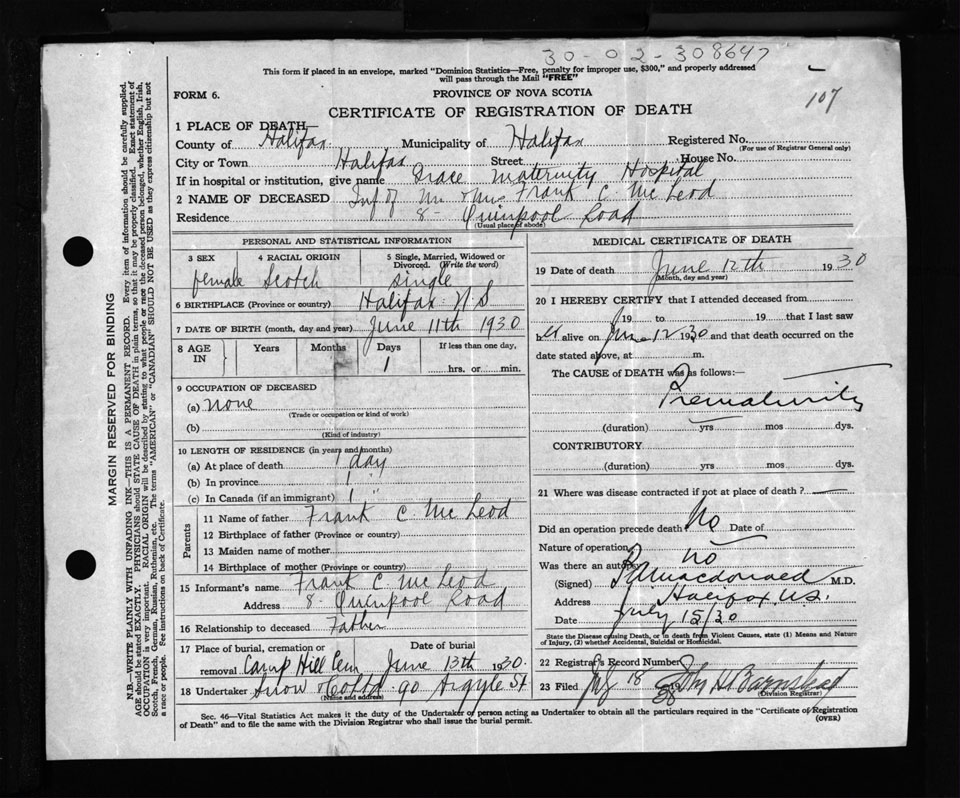 30-02-308647
This form if placed in an envelope, marked "Dominion Statistics—Free, penalty for improper use, $300," and properly addressed
will pass through the Mail "FREE"
107
FORM 6.
PROVINCE OF NOVA SCOTIA
CERTIFICATE OF REGISTRATION OF DEATH
1 PLACE OF DEATH
County of Halifax Municipality of Halifax Registered No.
(For use of Registrar General only)
City or Town Halifax Street House No.
If in hospital or institution, give name Grace Maternity Hospital
2 NAME OF DECEASED Inf of Mr & Mrs Frank C. McLeod
Residence 8- Quinpool Road
(Usual place of abode)
PERSONAL AND STATISTICAL INFORMATION
3 SEX 4 RACIAL ORIGIN 5 Single, Married, Widowed or
Divorced. (Write the word)
female Scotch Single
6 BIRTHPLACE (Province or country) Halifax N S
7 DATE OF BIRTH (month, day and year) June 11th 1930
8 AGE IN Years Months Days If less than one day,
1 hrs. or min.
9 OCCUPATION OF DECEASED
(a) none
(Trade or occupation or kind of work)
(b)
(Kind of industry)
10 LENGTH OF RESIDENCE (in years and months)
(a) At place of death 1 day
(b) In province 1 "
(c) In Canada (if an immigrant) 1 "
Parents
11 Name of father Frank C. McLeod
12 Birthplace of father (Province or country)
13 Maiden name of mother
14 Birthplace of mother (Province or country)
15 Informant's name Frank C McLeod
Address 8- Quinpool Road
16 Relationship to deceased Father
17 Place of burial, cremation or removal Date of burial
Camp Hill Cem June 13th 1930.
18 Undertaker Snow & Co Ltd 90 Argyle St
(Name and address)
MEDICAL CERTIFICATE OF DEATH
19 Date of death June 12th 1930
(Month, day and year)
20 I HEREBY CERTIFY that I attended deceased from
19 to 19 that I last saw
h alive on June 12 1930 and that death occurred on the
date stated above, at m.
The CAUSE of DEATH was as follows:—
Prematurity
(duration) yrs mos dys.
CONTRIBUTORY
(duration) yrs mos dys.
21 Where was disease contracted if not at place of death?
Did an operation precede death No Date of
Nature of operation
Was there an autopsy no
(Signed) Macdonald M.D.
Address Halifax N.S.
Date July 15/30
State the Disease causing Death, or in death from Violent Causes, state (1) Means and Nature
of Injury, (2) whether Accidental, Suicidal or Homicidal.
22 Registrar's Record Number
23 Filed July 18 30 Barnstead
(Division Registrar)
Sec. 46—Vital Statistics Act makes it the duty of the Undertaker or person acting as Undertaker to obtain all the particulars required in the "Certificate of Registration
of Death" and to file the same with the Division Registrar who shall issue the burial permit.
(OVER)
MARGIN RESERVED FOR BINDING
N.B. WRITE PLAINLY WITH UNFADING INK—THIS IS A PERMANENT RECORD. Every item of information should be carefully supplied.
AGE should be stated EXACTLY. PHYSICIANS should STATE CAUSE OF DEATH in plain terms, so that it may be properly classified. Exact statement of
OCCUPATION is very important. RACIAL ORIGIN will be described by stating to what people or race the deceased person belonged, whether English, Irish,
Scotch, French, German, Russian, Ruthenian, etc. The terms "AMERICAN" or "CANADIAN" SHOULD NOT BE USED as they express citizenship but not
a race or people. See instructions on back of Certificate.